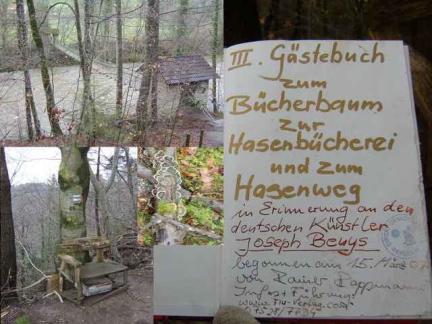 III. Gästebuch
zum
Bücherbaum
zur
Hasenbücherei
und zum
Hasenweg
in Erinnerung an den
deutschen Künstler
Joseph Beuys
begonnen am 15. März
von Rainer Rappmann
Führung:
www.fiu-verlag.com